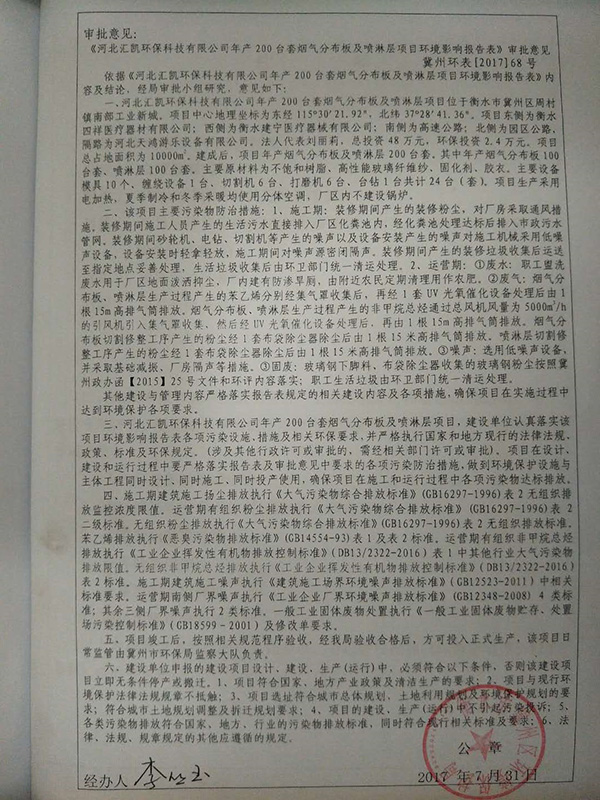 审批意见:
《河北汇凯环保科技有限公司年产200台套烟气分布板及喷淋层项目环境影响报告表》审批意见
冀州环表[2017]68号
依据《河北汇凯环保科技有限公司年产200台套烟气分布板及喷淋层项目环境影响报告表》内
容及结论,经局审批小组研究,意见如下:
一、河北汇凯环保科技有限公司年产200台套烟气分布板及喷淋层项目位于衡水市冀州区周村
镇南部工业新城,项目中心地理坐标为东经115°30′21.92″,北纬37°28′41.36″。项目东侧为衡水
四祥医疗器材有限公司;西侧为衡水建宁医疗器械有限公司;南侧为高速公路;北侧为园区公路,
隔路为河北天鸿游乐设备有限公司。法人代表刘丽莉,总投资48万元,环保投资2.4万元。项目
总占地面积为10000m²。建成后,项目年产烟气分布板及喷淋层200台套。其中年产烟气分布板100
台套、喷淋层100台套。主要原材料为不饱和树脂、高性能玻璃纤维纱、固化剂、胶衣。主要设备
模具10个、缠绕设备1台、切割机6台、打磨机6台、台钻1台共计24台(套)。项目生产采用
电加热,夏季制冷和冬季采暖均使用分体空调,厂区内不建设锅炉。
二、该项目主要污染物防治措施:1、施工期:装修期间产生的装修粉尘,对厂房采取通风措
施。装修期间施工人员产生的生活污水直接排入厂区化粪池内,经化粪池处理达标后排入市政污水
管网。装修期间砂轮机、电钻、切割机等产生的噪声以及设备安装产生的噪声对施工机械采用低噪
声设备,设备安装时轻拿轻放,施工期间对噪声源密闭隔声。装修期间产生的装修垃圾收集后运送
至指定地点妥善处理,生活垃圾收集后由环卫部门统一清运处理。2、运营期:①废水:职工盥洗
废水用于厂区地面泼洒抑尘,厂内建有防渗旱厕,由附近农民定期清理用作农肥。②废气:烟气分
布板、喷淋层生产过程产生的苯乙烯分别经集气罩收集后,再经1套UV光氧催化设备处理后由1
根15m高排气筒排放。烟气分布板,喷淋层生产过程产生的非甲烷总烃通过总风机风量为5000m³/h
的引风机引入集气罩收集,然后经UV光氧催化设备处理后,再由1根15m高排气筒排放。烟气分
布板切割修整工序产生的粉尘经1套布袋除尘器除尘后由1根15米高排气筒排放。喷淋层切割修
整工序产生的粉尘经1套布袋除尘器除尘后由1根15米高排气筒排放。③噪声:选用低噪声设备,
并采取基础减振、厂房隔声等措施。④固废:玻璃钢下脚料、布袋除尘收集的玻璃钢粉尘按照冀
州政办函【2015】25号文件和环评内容落实;职工生活垃圾由环卫部门统一清运处理。
其他建设与管理内容严格落实报告表规定的相关建设内容及各项措施,确保项目在实施过程中
达到环境保护各项要求。
三、河北汇凯环保科技有限公司年产200台套烟气分布板及喷淋层项目,建设单位认真落实该
项目环境影响报告表各项污染设施、措施及相关环保要求,并严格执行国家和地方现行的法律法规、
政策、标准及环保规定。(涉及其他行政许可或审批的,需经相关部门许可或审批)。项目在设计、
建设和运行过程中要严格落实报告表及审批意见中要求的各项污染防治措施,做到环境保护设施与
主体工程同时设计、同时施工、同时投产使用,确保项目在施工和运行过程中各项污染物达标排放。
四、施工期建筑施工场尘排放执行《大气污染物综合排放标准》(GB16297-1996)表2无组织排
放监控浓度限值。运营期有组织粉尘排放执行《大气污染物综合排放标准》(GB16297-1996)表2
二级标准。无组织粉尘排放执行《大气污染物综合排放标准》(GB16297-1996)表2无组织排放标准。
苯乙烯排放执行《恶臭污染物排放标准》(GB14554-93)表1及表2标准。运营期有组织非甲烷总烃
排放执行《工业企业挥发性有机物排放控制标准》(DB13/2322-2016)表1中其他行业大气污染物
排放限值。无组织非甲烷总烃排放执行《工业企业挥发性有机物排放控制标准》(DB13/2322-2016)
表2标准。施工期建筑施工噪声执行《建筑施工场界环境噪声排放标准》(GB12523-2011)中相关
标准要求。运营期南侧厂界噪声执行《工业企业厂界环境噪声排放标准》(GB12348-2008)4类标
准;其余三侧厂界噪声执行2类标准。一般工业固体废物处置执行《一般工业固体废物贮存、处置
场污染控制标准》(GB18599-2001)及修改单要求。
五、项目竣工后,按照相关规范程序验收,经我局验收合格后,方可投入正式生产,该项目日
常监管由冀州市环保局监察大队负责。
六、建设单位申报的建设项目设计、建设、生产(运行)中,必须符合以下条件,否则该建设项
目立即无条件停产或搬迁。1、项目符合国家、地方产业政策及清洁生产的要求;2、项目与现行环
境保护法律法规规章不抵触;3、项目选址符合城市总体规划、土地利用规划及环境保护规划的要
求;符合城市土地规划调整及拆迁规划要求;4、项目的建设、生产(运行)中不引起污染投诉;5、
各类污染物排放符合国家、地方、行业的污染物排放标准,同时符合现行相关标准及要求;6、法
律、法规、规章规定的其他应遵循的规定。
公 章
经办人
2017 年 7 月 31 日